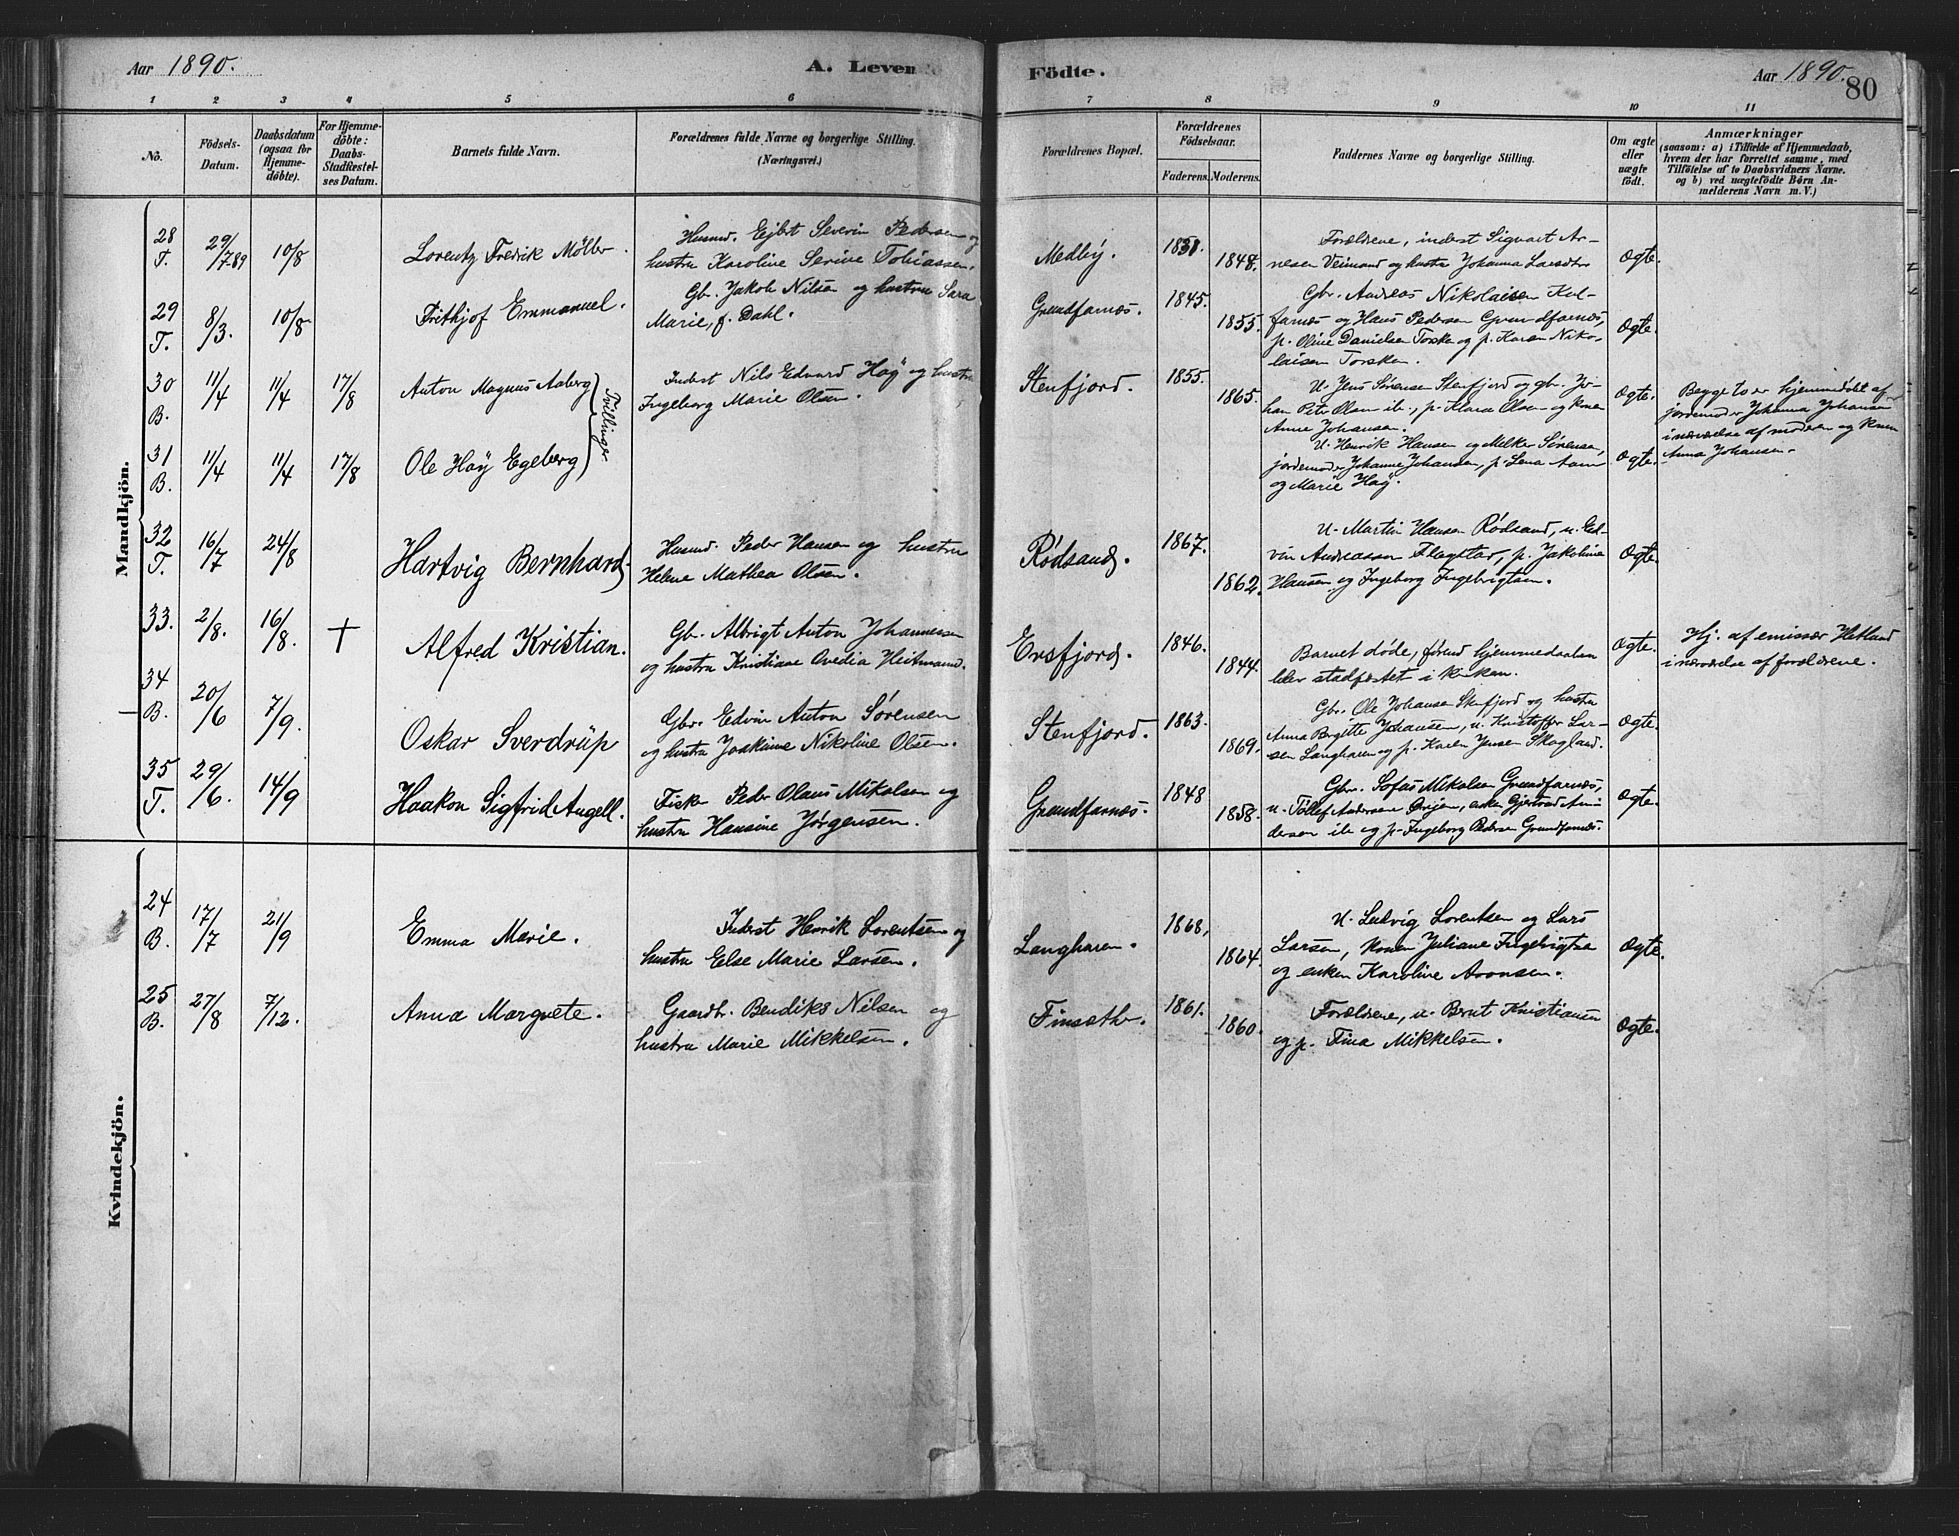 Aar 1890.
A. Levende Födte.
Aar 1890.
80
1 2 3 4 5 6 7 8 9 10 11
No.
Födsels-
Datum.
Daabsdatum
(ogsaa for
Hjemme-
döbte).
For Hjemme-
döbte:
Daabs-
Stadfæstel-
ses Datum.
Barnets fulde Navn.
Forældrenes fulde Navne og borgerlige Stilling.
(Næringsvei.)
Forældrenes Bopæl.
Forældrenes
Födselsaar.
Faderens. Moderens.
Faddernes Navne og borgerlige Stilling.
Om ægte
eller
uægte
födt.
Anmærkninger
(saasom: a) i Tilfælde af Hjemmedaab,
hvem der har forrettet samme, med
Tilföielse af to Daabsvidners Navne,
og b) ved uægtefödte Börn An-
melderens Navn m. V.)
Mandkjön.
28
T.
29/7 89
10/8
Lorentz Fredrik Möller.
Husmd. Ejlert Severin Pedersen og
hustru Karoline Serine Tobiassen.
Medby.
1851.
1848.
Forældrene, inderst Sigvart Ar-
nesen Veimand og hustru Johanna Larsdtr
Ægte.
29
T.
8/3.
10/8
Frithjof Emmanuel.
Gb. Jakob Nilsen og hustru Sara
Marie, f. Dahl.
Grundfarnæs.
1845.
1855.
Gbr. Andreas Nikolaisen Kal-
farnæs og Hans Pedersen Grundfarnæs,
p. Oline Danielsen Torsken og p. Karen Niko-
laisen Torsken.
Ægte.
30
B.
11/4
11/4
17/8
Anton Magnus Aaberg
Tvillinger
Inderst Nils Edvard Haÿ og hustru
Ingeborg Marie Olsen.
Stenfjord.
1855.
1865.
U. Jens Sörensen Stenfjord og gbr. Jo-
han Petr Olsen ib., p. Klara Olsen og konen
Anne Johansen.
Ægte.
Begge to er hjemmedøbt af
jordemoder Johanna Johansen
i nærværelse af moderen og konen
Anna Johansen.
31
B.
11/4
11/4
17/8
Ole Haÿ Egeberg
U. Henrik Hansen og Melker Sørensen,
jordemoder Johanne Johansen, p. Lena Aam
og Marie Haÿ.
Ægte.
32
T.
16/7
24/8
Hartvig Bernhard.
Husmd. Peder Hansen og hustru
Helene Mathea Olsen.
Rødsand.
1867.
1862.
U. Martin Hansen Rødsand, u. Ed-
vin Andreassen Flagstad, p. Jakobine
Hansen og Ingeborg Ingebrigtsen.
Ægte.
33.
2/8.
16/8.
†
Alfred Kristian.
Gb. Albrigt Anton Johannessen
og hustru Kristiane Ovedia Heitmann.
Ersfjord.
1846.
1844.
Barnet døde, førend hjemmedaaben
blev stadfæstet i kirken.
Ægte.
Hj. af emissær Hetland
i nærværelse af forældrene.
34
B.
20/6
7/9.
Oskar Sverdrüp
Gbr. Edvin Anton Sørensen
og hustru Joakime Nikoline Olsen.
Stenfjord.
1863.
1869.
Gbr. Ole Johansen Stenfjord og hustru
Anna Birgitte Johansen, u. Kristoffer Lar-
sen Langhavn og p. Karen Jensen Skogland.
Ægte.
35
T.
29/6.
14/9
Haakon Sigfrid Angell.
Fisker Peder Olaus Mikalsen og
hustru Hansine Jørgensen.
Grundfarnæs.
1848
1858.
Gbr. Sofus Mikalsen Grundfarnæs,
u. Tollef Andersen Ørijen, enken Gjertrud An-
dersen ib. og p. Ingeborg Pedersen Grundfarnæs.
Ægte.
Kvindekjön.
24
B.
17/7
21/9
Emma Marie.
Inderst Henrik Lorentsen og
hustru Else Marie Larsen.
Langhavn.
1868,
1864.
U. Ludvig Lorentsen og Lars
Larsen, konen Juliane Ingebrigtsen
og enken Karoline Aronsen.
Ægte.
25
B.
27/8
7/12.
Anna Margrete.
Gaardbr. Bendiks Nilsen og
hustru Marie Mikkelsen.
Finsæth.
1861.
1860.
Forældrene, u. Brut Kristiansen
og p. Fina Mikkelsen.
Ægte.